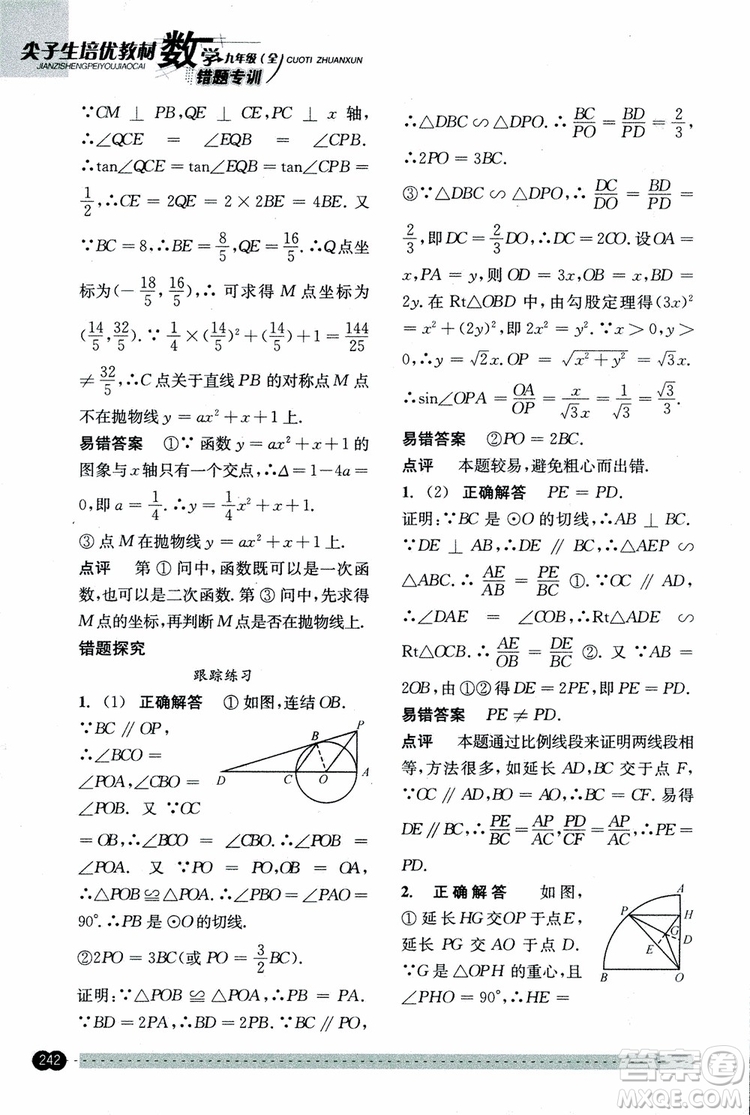 尖子生培优教材 数学 九年级(全) CUOTI ZHUANXUN
JIANZISHENGPEIYOUJIAOCAI 错题专训
∵CM ⊥ PB,QE ⊥ CE,PC ⊥ x 轴,
∴∠QCE = ∠EQB = ∠CPB.
∴tan∠QCE = tan∠EQB = tan∠CPB =
1/2,∴CE = 2QE = 2 × 2BE = 4BE. 又
∵BC = 8,∴BE = 8/5,QE = 16/5.∴Q 点坐
标为(−18/5,16/5),∴ 可求得 M 点坐标为
(14/5,32/5).∵ 1/4 × (14/5)² + 14/5 + 1 = 144/25
≠ 32/5,∴C 点关于直线 PB 的对称点 M 点
不在抛物线 y = ax² + x + 1 上.
易错答案 ①∵ 函数 y = ax² + x + 1 的
图象与 x 轴只有一个交点,∴Δ = 1−4a =
0,即 a = 1/4.∴y = 1/4x² + x + 1.
③ 点 M 在抛物线 y = ax² + x + 1 上.
点评 第 ① 问中,函数既可以是一次函
数,也可以是二次函数. 第 ③ 问中,先求得
M 点的坐标,再判断 M 点是否在抛物线上.
错题探究
跟踪练习
1. (1) 正确解答 ① 如图,连结 OB.
∵BC ∥ OP,
∴∠BCO =
∠POA,∠CBO =
∠POB. 又 ∵OC
= OB,∴∠BCO = ∠CBO.∴∠POB =
∠POA. 又 ∵ PO = PO, OB = OA,
∴△POB ≌ △POA.∴∠PBO = ∠PAO =
90°.∴PB 是 ⊙O 的切线.
②2PO = 3BC(或 PO = 3/2BC)
证明:∵△POB ≌ △POA,∴PB = PA.
∵BD = 2PA,∴BD = 2PB.∵BC ∥ PO,
D C O A B P
∴△DBC ∽ △DPO.∴ BC/PO = BD/PD = 2/3,
∴2PO = 3BC.
③∵△DBC ∽ △DPO,∴ DC/DO = BD/PD =
2/3,即 DC = 2/3OD,∴DC = 2CO. 设 OA =
x,PA = y, 则 OD = 3x,OB = x,BD =
2y. 在 Rt△OBD 中,由勾股定理得(3x)²
= x² + (2y)²,即 2x² = y².∵x > 0,y >
0,∴y = √2x.OP = √(x² + y²) = √3x.
∴sin∠OPA = OA/OP = x/√3x = 1/√3 = √3/3.
易错答案 ②PO = 2BC.
点评 本题较易,避免粗心而出错.
1. (2) 正确解答 PE = PD.
证明:∵BC 是 ⊙O 的切线,∴AB ⊥ BC.
∵DE ⊥ AB,∴DE ∥ BC,∴△AEP ∽
△ABC.∴ AE/AB = PE/BC ①.∵AD ∥ OC,
∴∠DAE = ∠COB,∴Rt△ADE ∽
Rt△OCB.∴ AE/OB = DE/BC ②. 又 ∵AB =
2OB, 由 ①② 得 DE = 2PE,即 PE = PD.
易错答案 PE ≠ PD.
点评 本题通过比例线段来证明两线段相
等,方法很多,如延长 AD、BC 交于点 F,
∵OC ∥ AD,BO = AO,∴BC = CF. 易得
DE ∥ BC,∴ PE/BC = AP/AC,PD/CF = AP/AC,∴PE
= PD.
2. 正确解答 如图,
① 延长 HG 交 OP 于点 E,
延长 PG 交 AO 于点 D.
∵G 是 △OPH 的重心,且
∠PHO = 90°,∴HE =
A P H G D E B O
242
答案圈
MXQE.COM